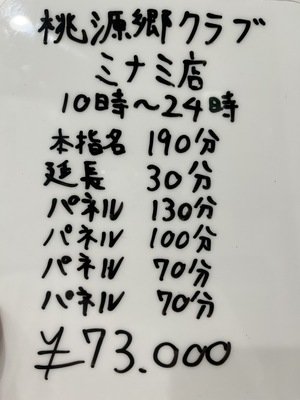 桃源郷クラブ
ミナミ店
10時〜24時
本指名 190分
延長 30分
パネル 130分
パネル 100分
パネル 70分
パネル 70分
¥73.000